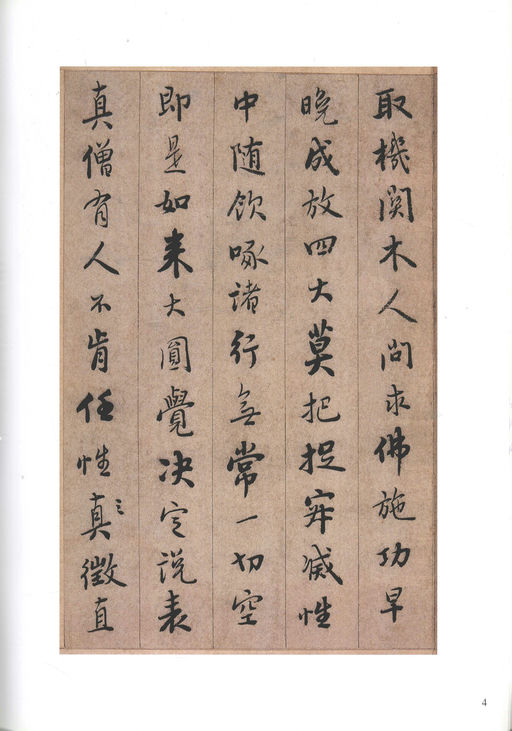 取機関木人問求佛施功早
晚成放四大莫把捉寂滅性
中随飲啄諸行無常一切空
即是如来大圓覺决定説表
真僧有人不肯任性真〻徵直
4